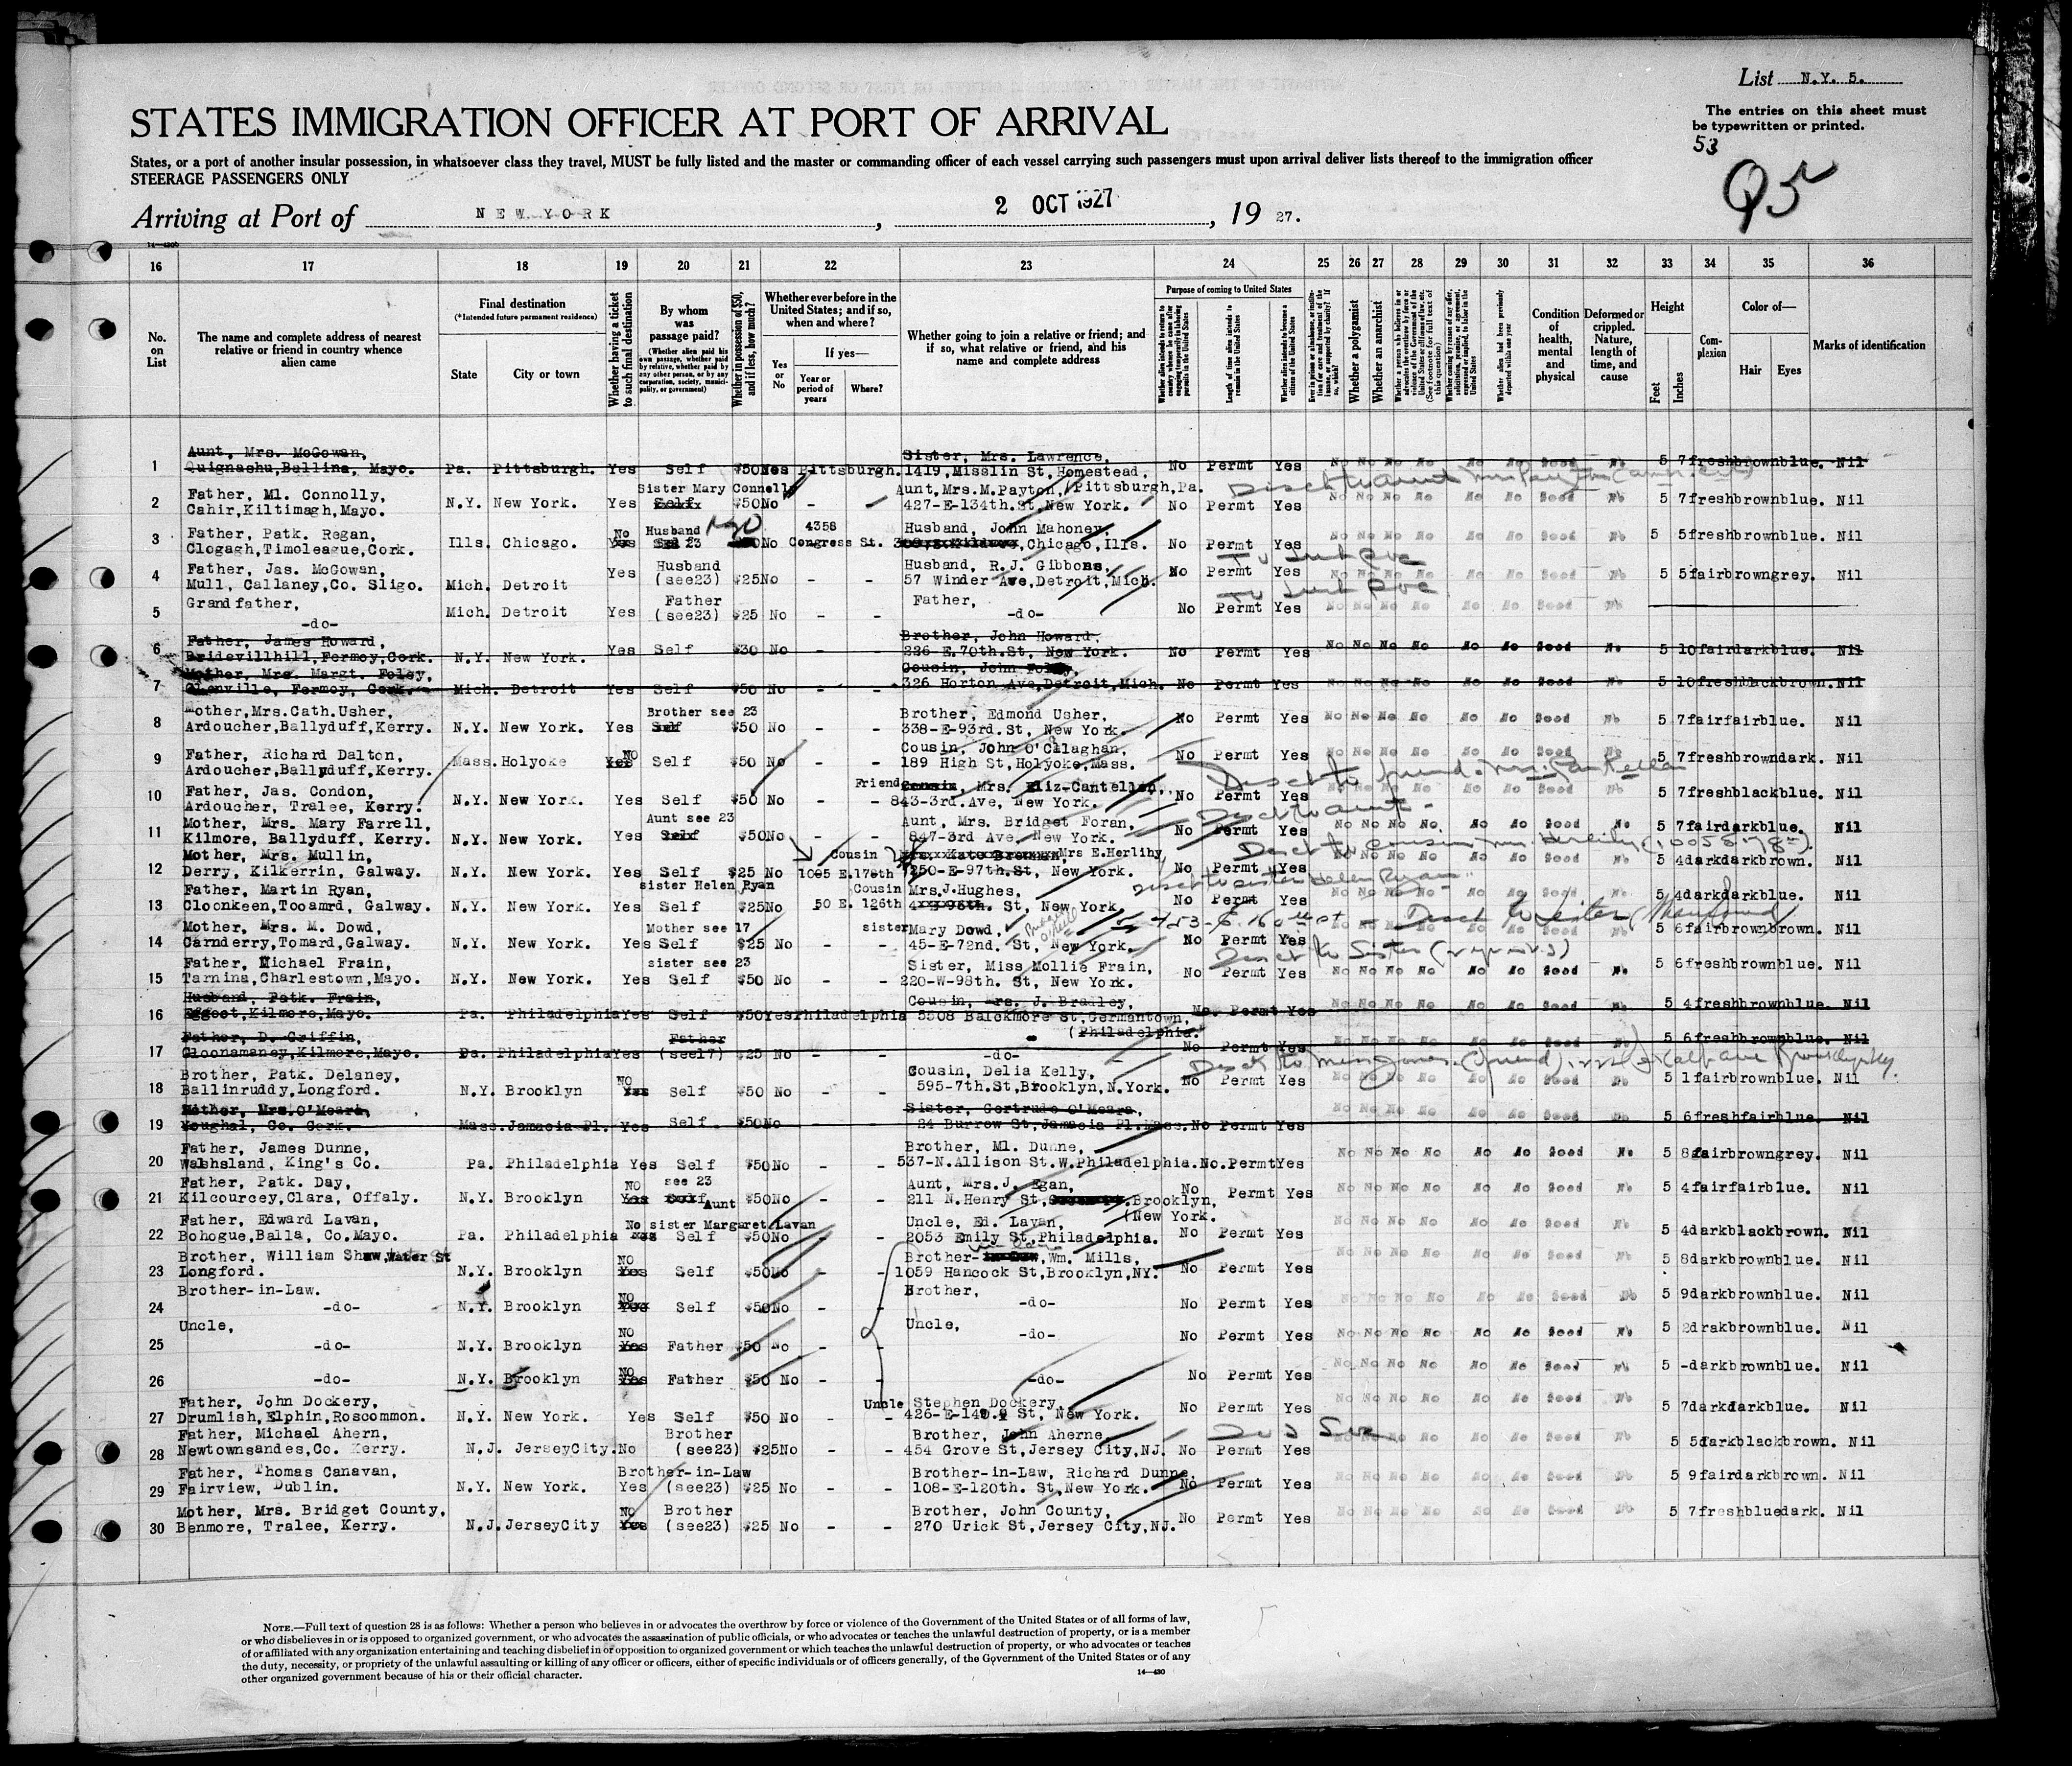 List N.Y. 5.
The entries on this sheet must
be typewritten or printed.
53
Q5
STATES IMMIGRATION OFFICER AT PORT OF ARRIVAL
States, or a port of another insular possession, in whatsoever class they travel, MUST be fully listed and the master or commanding officer of each vessel carrying such passengers must upon arrival deliver lists thereof to the immigration officer
STEERAGE PASSENGERS ONLY
Arriving at Port of NEW YORK, 2 OCT 1927, 19 27.
16 17 18 19 20 21 22 23 24 25 26 27 28 29 30 31 32 33 34 35 36
No. on List
The name and complete address of nearest relative or friend in country whence alien came
Final destination
(*Intended future permanent residence)
State City or town
Whether having a ticket to such final destination
By whom was passage paid?
(Whether alien paid his own passage, whether paid by relative, whether paid by any other person, or by any corporation, society, municipality, or government)
Whether in possession of $50, and if less, how much?
Whether ever before in the United States; and if so, when and where?
Yes or No
If yes—
Year or period of years Where?
Whether going to join a relative or friend; and if so, what relative or friend, and his name and complete address
Purpose of coming to United States
Length of time alien intends to remain in the United States
Whether alien intends to become a citizen of the United States
Whether a polygamist
Whether an anarchist
Condition of health, mental and physical
Deformed or crippled. Nature, length of time, and cause
Height
Feet Inches
Complexion
Color of—
Hair Eyes
Marks of identification
Aunt, Mrs. McGowan, Sister, Mrs. Lawrence,
1 Quignashu,Ballina, Mayo. Pa. Pittsburgh. Yes Self $50 Yes Pittsburgh. 1419,Misslin St,Homestead, No Permt Yes No No No No No No Good No 5 7 fresh brown blue. Nil
Father, Ml. Connolly, Sister Mary Connelly Aunt,Mrs.M.Payton, Pittsburgh,Pa.
2 Cahir,Kiltimagh,Mayo. N.Y. New York. Yes Self $50 No - - 427-E-134th.St,New York. No Permt Yes No No No No No No Good No 5 7 fresh brown blue. Nil
Father, Patk. Regan, No Husband 4358 Husband, John Mahoney,
3 Clogagh,Timoleague,Cork. Ills. Chicago. Yes 23 No Congress St. Chicago,Ills. No Permt Yes No No No No No No Good No 5 5 fresh brown blue. Nil
Father, Jas. McGowan, Husband Husband, R.J. Gibbons.
4 Mull, Callaney,Co. Sligo. Mich. Detroit Yes (see23) $25 No - - 57 Winder Ave,Detroit,Mich. No Permt Yes No No No No No No Good No 5 5 fair brown grey. Nil
Grandfather, Father Father,
5 -do- Mich. Detroit Yes (see23) $25 No - - -do- No Permt Yes No No No No No No Good No
Father, James Howard, Brother, John Howard,
6 Bridevillhill,Fermoy,Cork. N.Y. New York. Yes Self $30 No - - 226 E.70th.St, New York. No Permt Yes No No No No No No Good No 5 10 fair dark blue. Nil
Mother, Mrs. Margt. Foley, Cousin, John Foley,
7 Glenville, Fermoy, Cork. Mich. Detroit Yes Self $50 No - - 326 Horton Ave,Detroit,Mich. No Permt Yes No No No No No No Good No 5 10 fresh black brown. Nil
Mother,Mrs.Cath.Usher, Brother see 23 Brother, Edmond Usher,
8 Ardoucher,Ballyduff,Kerry. N.Y. New York. Yes Self $50 No - - 338-E-93rd.St, New York. No Permt Yes No No No No No No Good No 5 7 fair fair blue. Nil
Father, Richard Dalton, NO Cousin, John O'Cllaghan,
9 Ardoucher,Ballyduff,Kerry. Mass. Holyoke Yes Self $50 No - - 189 High St,Holyoke,Mass. No Permt Yes No No No No No No Good No 5 7 fresh brown dark. Nil
Father, Jas. Condon, Friend Cousin, Mrs. Eliz-Cantellon,
10 Ardoucher, Tralee, Kerry. N.Y. New York. Yes Self $50 No - - 843-3rd.Ave, New York. No Permt Yes No No No No No No Good No 5 7 fresh black blue. Nil
Mother, Mrs. Mary Farrell, Aunt see 23 Aunt, Mrs. Bridget Foran, Disch to aunt -
11 Kilmore, Ballyduff, Kerry. N.Y. New York. Yes Self $50 No - - 847-3rd Ave, New York. No Permt Yes No No No No No No Good No 5 7 fair dark blue. Nil
Mother, Mrs. Mullin, Cousin Mrs E.Herlihy
12 Derry, Kilkerrin, Galway. N.Y. New York. Yes Self $25 No 1005 E.178th 250-E-97th.St, New York. No Permt Yes No No No No No No Good No 5 4 dark dark brown. Nil
Father, Martin Ryan, sister Helen Ryan Cousin Mrs.J.Hughes, Disch to sister Helen Ryan
13 Cloonkeen,Tooamrd, Galway. N.Y. New York. Yes Self $25 No 50 E. 126th St, New York. No Permt Yes No No No No No No Good No 5 4 dark dark blue. Nil
Mother, Mrs. M. Dowd, Mother see 17 sister Mary Dowd,
14 Carnderry,Tomard,Galway. N.Y. New York. Yes Self $25 No - - 45-E-72nd. St, New York. No Permt Yes No No No No No No Good No 5 6 fair brown brown. Nil
Father, Michael Frain, sister see 23 Sister, Miss Mollie Frain,
15 Tarnina,Charlestown,Mayo. N.Y. New York. Yes Self $50 No - - 220-W-98th. St, New York. No Permt Yes No No No No No No Good No 5 6 fresh brown blue. Nil
Husband, Patk. Frain, Cousin, Mrs. J. Bradley,
16 Eggoot,Kilmore,Mayo. Pa. Philadelphia Yes Self $50 Yes Philadelphia 5508 Balckmore St,Germantown, No Permt Yes No No No No No No Good No 5 4 fresh brown blue. Nil
(Philadelphia.
Father, D. Griffin, Father
17 Cloonamaney,Kilmore,Mayo. Pa. Philadelphia Yes (see17) $25 No - - -do- No Permt Yes No No No No No No Good No 5 6 fresh brown blue. Nil
Brother, Patk. Delaney, NO Cousin, Delia Kelly,
18 Ballinruddy,Longford. N.Y. Brooklyn Yes Self $50 No - - 595-7th.St,Brooklyn,N.York. No Permt Yes No No No No No No Good No 5 1 fair brown blue. Nil
Mither, Mrs.O'Meara, Sister, Gertrude O'Meara,
19 Youghal, Co. Cork. Mass. Jamacia Pl. Yes Self $50 No 24 Burrow St,Jamacia Pl.Mass. No Permt Yes No No No No No No Good No 5 6 fresh fair blue. Nil
Father, James Dunne, Brother, Ml. Dunne,
20 Walshsland, King's Co. Pa. Philadelphia Yes Self $50 No - - 537-N.Allison St.W.Philadelphia. No. Permt Yes No No No No No No Good No 5 8 fair brown grey. Nil
Father, Patk. Day, NO see 23 Aunt, Mrs.J. Egan,
21 Kilcourcey,Clara, Offaly. N.Y. Brooklyn Yes Self Aunt $50 No - - 211 N.Henry St, Brooklyn, No Permt Yes No No No No No No Good No 5 4 fair fair blue. Nil
(New York.
Father, Edward Lavan, No sister Margaret Lavan Uncle, Ed. Lavan,
22 Bohogue,Balla, Co.Mayo. Pa. Philadelphia Yes Self $50 No - - 2053 Emily St,Philadelphia. No Permt Yes No No No No No No Good No 5 4 dark black brown. Nil
Brother, William Shaw,Water St NO Brother-in-Law, Wm. Mills,
23 Longford. N.Y. Brooklyn Yes Self $50 No - - 1059 Hancock St,Brooklyn,NY. No Permt Yes No No No No No No Good No 5 8 dark brown blue. Nil
Brother-in-Law. NO Brother,
24 -do- N.Y. Brooklyn Yes Self $50 No - - -do- No Permt Yes No No No No No No Good No 5 9 dark brown blue. Nil
Uncle, NO Uncle,
25 -do- N.Y. Brooklyn Yes Father $50 No - - -do- No Permt Yes No No No No No No Good No 5 2 drak brown blue. Nil
NO
26 -do- N.Y. Brooklyn Yes Father $50 No - - -do- No Permt Yes No No No No No No Good No 5 - dark brown blue. Nil
Father, John Dockery, Uncle Stephen Dockery,
27 Drumlish,Elphin,Roscommon. N.Y. New York. Yes Self $50 No - - 426-E-149. St, New York. No Permt Yes No No No No No No Good No 5 7 dark dark blue. Nil
Father, Michael Ahern, Brother Brother, John Aherne,
28 Newtownsandes,Co. Kerry. N.J. JerseyCity. No (see23) $25 No - - 454 Grove St,Jersey City,NJ. No Permt Yes No No No No No No Good No 5 5 dark black brown. Nil
Father, Thomas Canavan, Brother-in-Law Brother-in-Law, Richard Dunne,
29 Fairview, Dublin. N.Y. New York. Yes (see23) $25 No - - 108-E-120th. St,New York. No Permt Yes No No No No No No Good No 5 9 fair dark brown. Nil
Mother, Mrs. Bridget County, NO Brother Brother, John County,
30 Benmore, Tralee, Kerry. N.J. JerseyCity Yes (see23) $25 No - - 270 Urick St,Jersey City,NJ. No Permt Yes No No No No No No Good No 5 7 fresh blue dark. Nil
NOTE.—Full text of question 28 is as follows: Whether a person who believes in or advocates the overthrow by force or violence of the Government of the United States or of all forms of law,
or who disbelieves in or is opposed to organized government, or who advocates the assassination of public officials, or who advocates or teaches the unlawful destruction of property, or is a member
of or affiliated with any organization entertaining and teaching disbelief in or opposition to organized government or which teaches the unlawful destruction of property, or who advocates or teaches
the duty, necessity, or propriety of the unlawful assaulting or killing of any officer or officers, either of specific individuals or of officers generally, of the Government of the United States or of any
other organized government because of his or their official character.
14—430